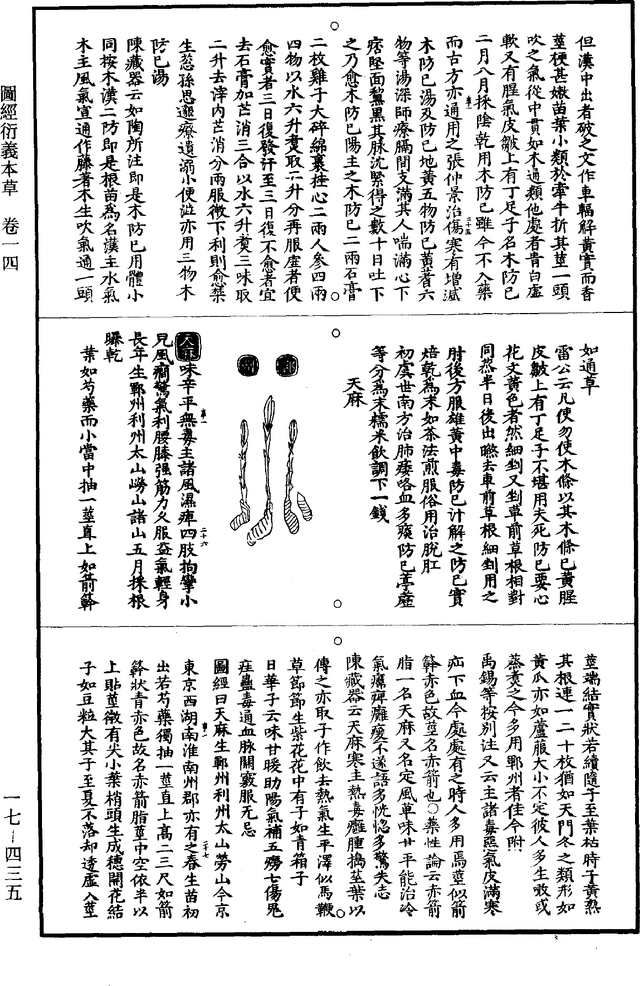 圖經衍義本草 卷一四
一七—四三五
但漢中出者破之文作車輻解黃實而香
莖梗甚嫩苗葉小類於牽牛折其莖一頭
吹之氣從中貫如木通類他處者青白虛
軟又有腥氣皮皺上有丁足子名木防已
二月八月採陰乾用木防已雖今不入藥
而古方亦通用之張仲景治傷寒有增減
木防已湯及防已地黃五物防已黃蓍六
物等湯深師療膈間支滿其人喘滿心下
痞堅面黧黑其脉沈緊得之數十日吐下
之乃愈木防已陽主之木防已二兩石膏
二枚雞子大碎綿裹桂心二兩人參四兩
四物以水六升煑取二升分再服虛者便
愈實者三日復發汗至三日復不愈者宜
去石膏加芒消三合以水六升煑三味取
二升去滓內芒消分兩服微下利則愈禁
生葱孫思邈療遺溺小便澁亦用三物木
防已湯
陳藏器云如陶所注即是木防已用體小
同按木漢二防即是根苗為名漢主水氣
木主風氣宣通作藤著木生吹氣通一頭
如通草
雷公云凡使勿使木條以其木條已黃腥
皮皺上有丁足子不堪用夫死防已要心
花文黃色者然細剉又剉車前草根相對
同蒸半日後出曬去車前草根細剉用之
肘後方服雄黃中毒防已汁解之防已實
焙乾為末如茶法煎服俗用治脫肛
初虞世南方治肺痿咯血多痰防已葶藶
等分為末糯米飲調下一錢
天麻
味辛平無毒主諸風濕痺四肢拘攣小
兒風癇驚氣利腰膝强筋力久服益氣輕身
長年生鄆州利州太山嶗山諸山五月採根
曝乾
葉如芍藥而小當中抽一莖直上如箭簳
莖端結實狀若續隨子至葉枯時子黃熟
其根連一二十枚猶如天門冬之類形如
黃瓜亦如蘆菔大小不定彼人多生啖或
蒸煑之今多用鄆州者佳今附
禹錫等按別注又云主諸毒惡氣皮滿寒
疝下血今處處有之時人多用焉莖似箭
簳赤色故莖名赤箭也○藥性論云赤箭
脂一名天麻又名定風草味甘平能治冷
氣𤸷痺癱瘓不遂語多恍惚多驚失志
陳藏器云天麻寒主熱毒癰腫搗莖葉以
傅之亦取子作飲去熱氣生平澤似馬鞭
草節節生紫花花中有子如青箱子
日華子云味甘暖助陽氣補五勞七傷鬼
疰蠱毒通血脉開竅服無忌
圖經曰天麻生鄆州利州太山勞山今京
東京西湖南淮南州郡亦有之春生苗初
出若芍藥獨抽一莖直上高二三尺如箭
簳狀青赤色故名赤箭脂莖中空依半以
上貼莖微有尖小葉梢頭生成穗開花結
子如豆粒大其子至夏不落却透虛入莖